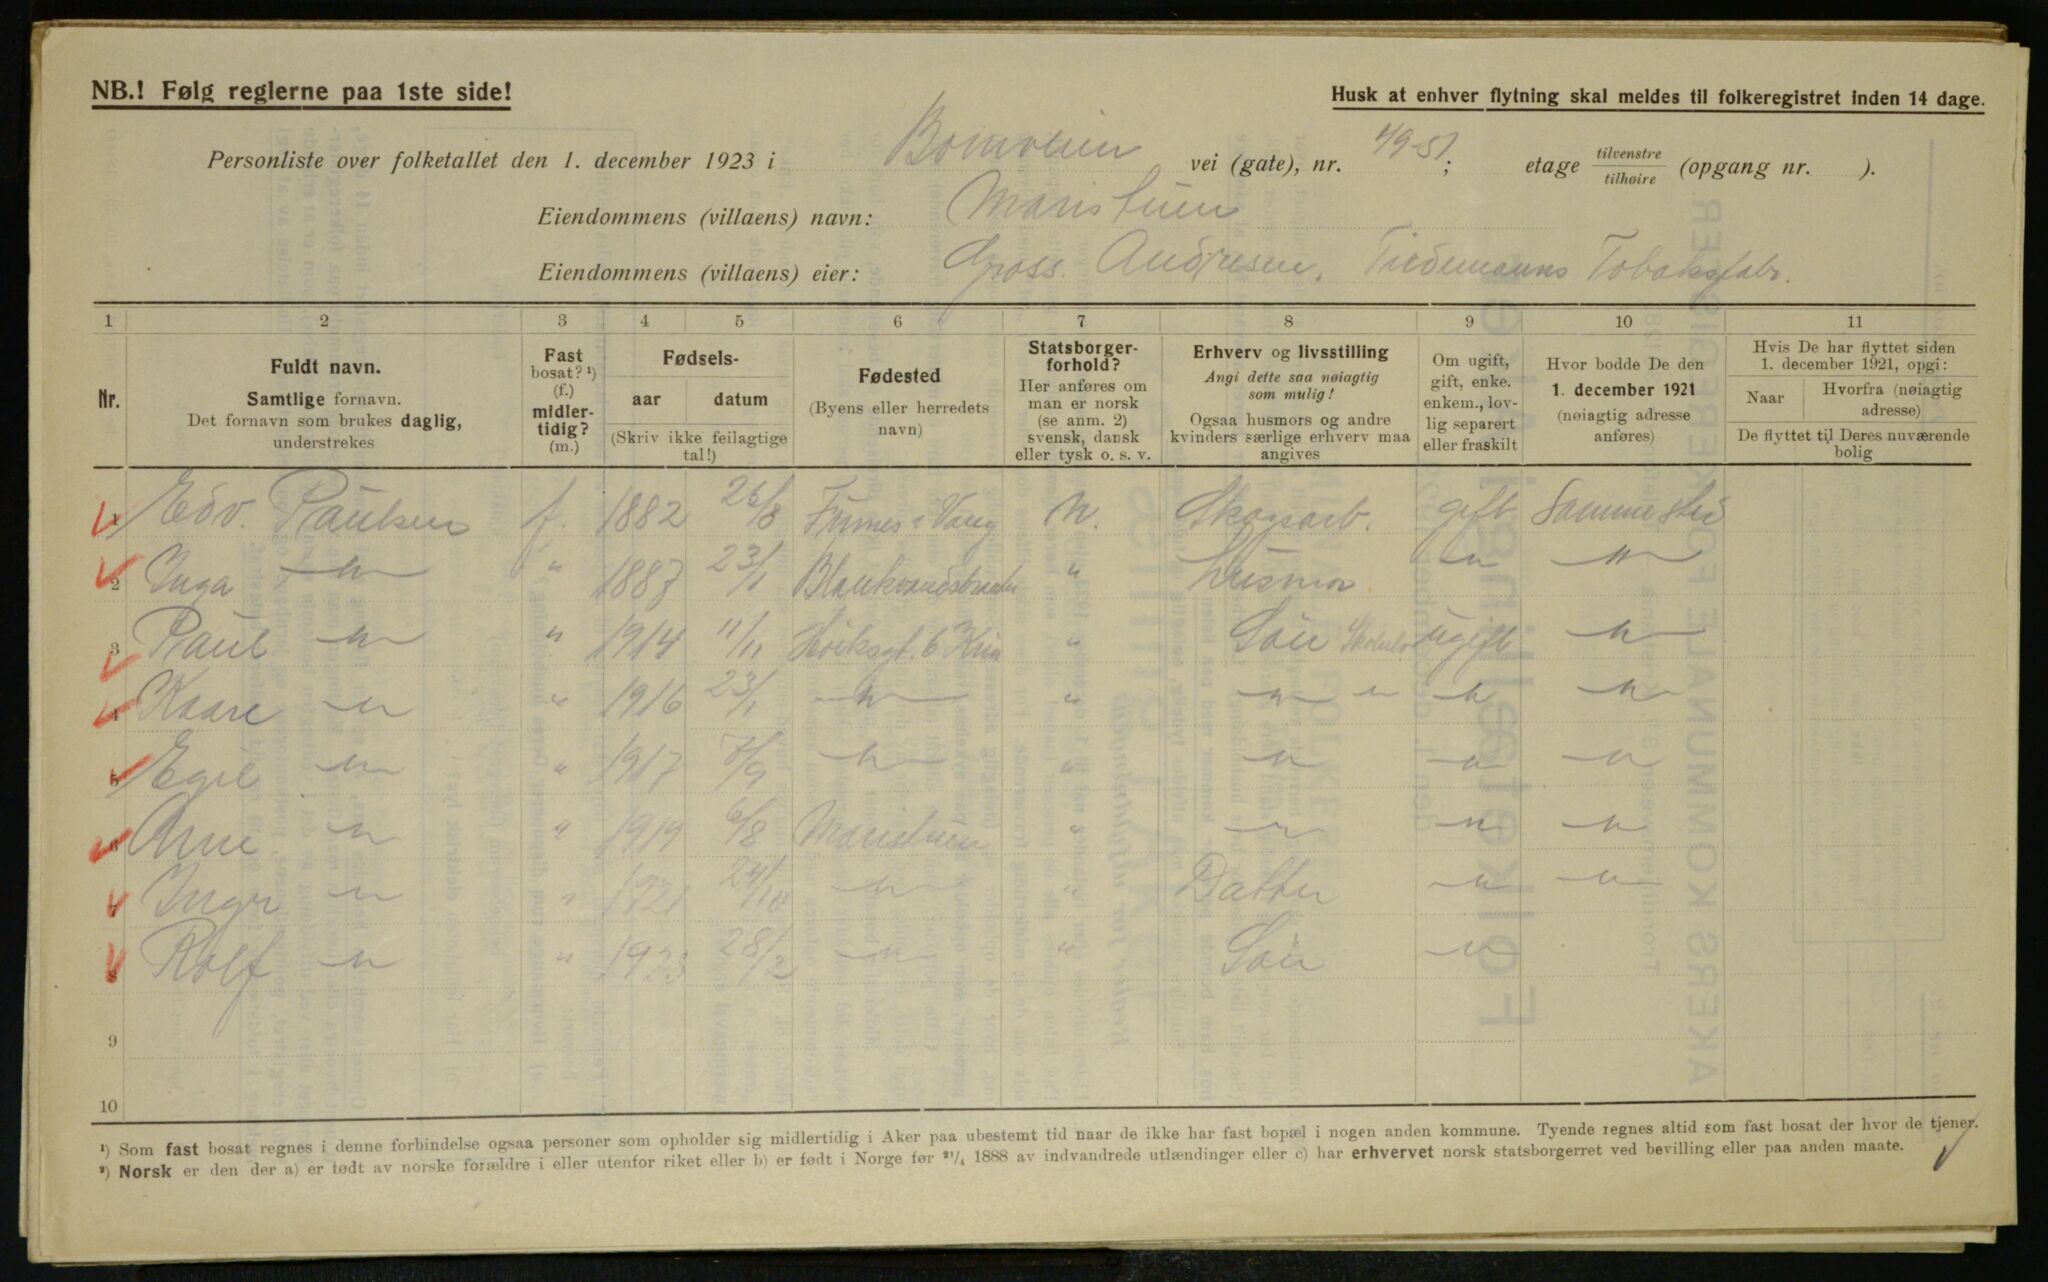 NB.! Følg reglerne paa 1ste side!
Husk at enhver flytning skal meldes til folkeregistret inden 14 dage.
Personliste over folketallet den 1. december 1923 i Bomveien vei (gate), nr. 49-51; etage tilvenstre/tilhøire (opgang nr. ).
Eiendommens (villaens) navn: Maristuen
Eiendommens (villaens) eier: Gross. Andresen, Tiedemanns Tobaksfabr.
1 2 3 4 5 6 7 8 9 10 11
Nr.
Fuldt navn.
Samtlige fornavn.
Det fornavn som brukes daglig,
understrekes
Fast
bosat? ¹)
(f.)
midler-
tidig?
(m.)
Fødsels-
aar datum
(Skriv ikke feilagtige
tal!)
Fødested
(Byens eller herredets
navn)
Statsborger-
forhold?
Her anføres om
man er norsk
(se anm. 2)
svensk, dansk
eller tysk o. s. v.
Erhverv og livsstilling
Angi dette saa nøiagtig
som mulig!
Ogsaa husmors og andre
kvinders særlige erhverv maa
angives
Om ugift,
gift, enke.
enkem., lov-
lig separert
eller fraskilt
Hvor bodde De den
1. december 1921
(nøiagtig adresse
anføres)
Hvis De har flyttet siden
1. december 1921, opgi:
Naar Hvorfra (nøiagtig
adresse)
De flyttet til Deres nuværende
bolig
1 Edv. Paulsen f. 1882 26/8 Furnes i Vang N. Skogsarb. gift Samme sted
2 Inga —"— " 1887 23/1 " Husmor " —"—
3 Paul —"— " 1914 11/11 6 Kria " Søn ugift —"—
4 Kaare —"— " 1916 23/1 —"— " —"— " —"— —"—
5 Egil —"— " 1917 7/9 —"— " —"— —"— —"—
6 Arne —"— " 1919 6/8 Maristuen " —"— —"— —"—
7 Inger —"— " 1921 24/10 —"— " Datter —"— —"—
8 Rolf —"— " 1923 28/2 —"— " Søn —"—
9
10
¹) Som fast bosat regnes i denne forbindelse ogsaa personer som opholder sig midlertidig i Aker paa ubestemt tid naar de ikke har fast bopæl i nogen anden kommune. Tyende regnes altid som fast bosat der hvor de tjener.
²) Norsk er den der a) er født av norske forældre i eller utenfor riket eller b) er født i Norge før 21/4 1888 av indvandrede utlændinger eller c) har erhvervet norsk statsborgerret ved bevilling eller paa anden maate.